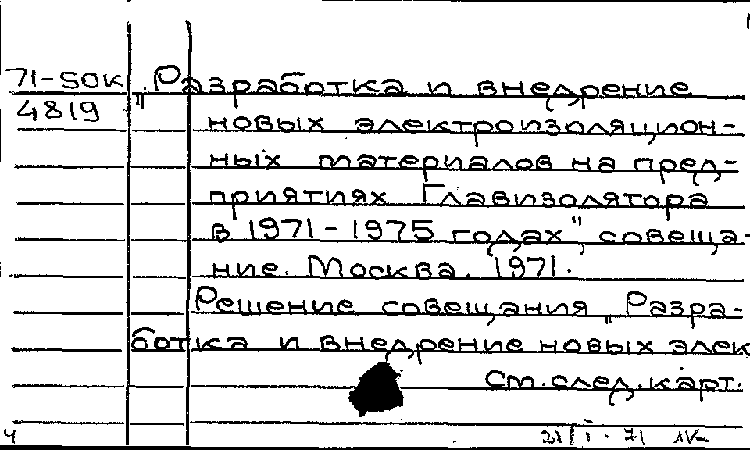 71-SOK „Разработка и внедрение
4819 новых электроизоляцион-
ных материалов на пред-
приятиях Главизолятора
в 1971-1975 годах", совеща-
ние. Москва. 1971.
Решение совещания „Разра-
ботка и внедрение новых элек
См. след. карт.
4